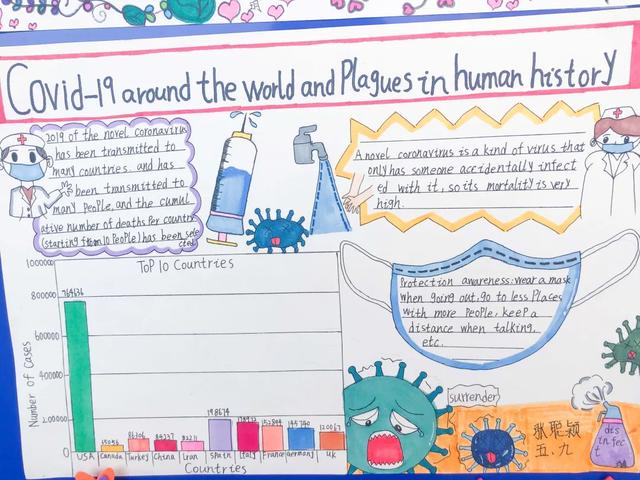 Covid-19 around the world and Plagues in human history
2019 of the novel coronavirus
has been transmitted to
many countries and has
been transmitted to
many People, and the cumul
ative number of deaths Per country
(starting from 10 People) has been sele
cted
A novel coronavirus is a kind of virus that
only has someone accidentally infect
ed with it, so its mortality is very
high.
Protection awareness: wear a mask
when going out, go to less Places
with more People, keep a
distance when talking,
etc.
ToP 10 Countries
Number of Cases
1000000
800000
600000
400000
200000
0
764636
86306
198674
152844
145740
USA
Canada
Turkey
China
Iran
Spain
Italy
France
Germany
UK
Countries
surrender
张聪颖
五.九
dis
infec
t